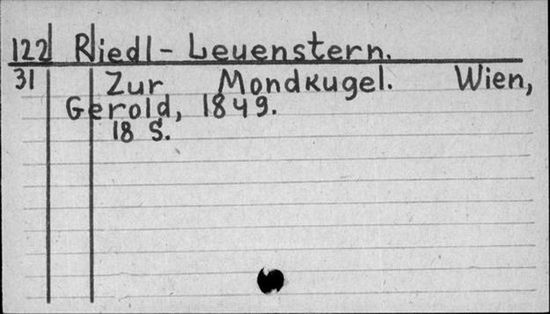 122 Riedl - Leuenstern.
31 Zur Mondkugel. Wien,
Gerold, 1849.
18 S.